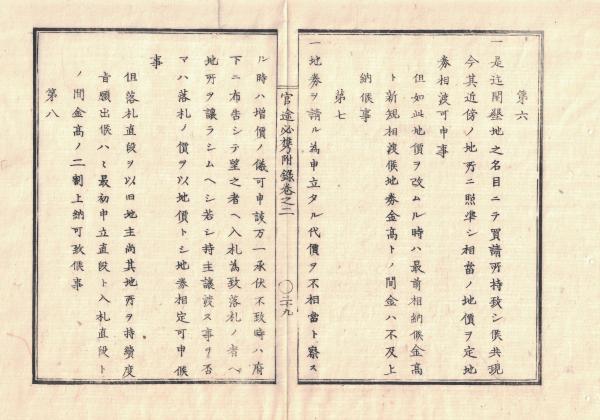 第六
一是迄開墾地之名目ニテ買請所持致シ候共現
今其近傍ノ地所ニ照準シ相當ノ地價ヲ定地
券相渡可申事
但如此地價ヲ改ムル時ハ最前相納候金高
ト新規相渡候地券金高トノ間金ハ不及上
納候事
第七
一地券ヲ請ル為申立タル代價ヲ不相當ト察ス
官途必携附錄卷之二
〇二十九
ル時ハ增價ノ儀可申諭万一承伏不致時ハ府
下ニ布告シテ望之者ヘ入札為致落札ノ者ヘ
地所ヲ讓ラシムヘシ若シ持主讓渡ス事ヲ否
マハ落札ノ價ヲ以地價トシ地券相定可申候
事
但落札直段ヲ以旧地主尚其地所ヲ持續度
旨願出候ハヽ最初申立直段ト入札直段ト
ノ間金高ノ二割上納可致候事
第八